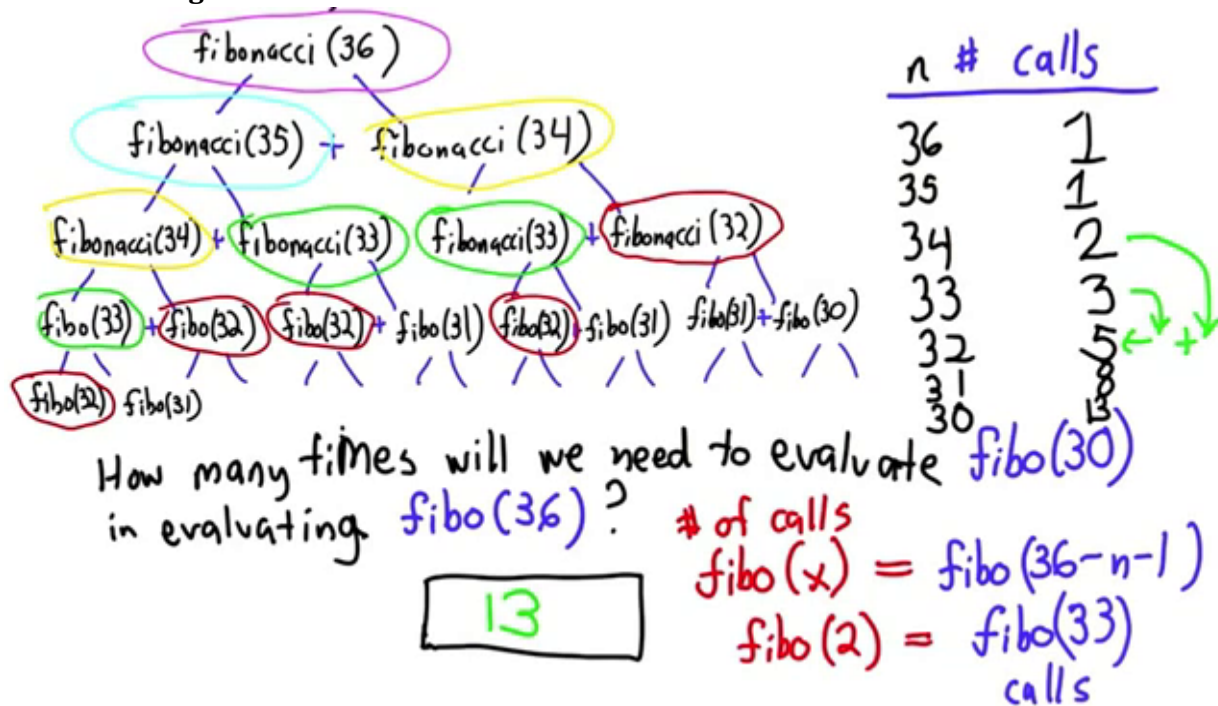 fibonacci (36)
fibonacci(35) + fibonacci (34)
fibonacci(34) + fibonacci(33) fibonacci(33) + fibonacci (32)
fibo(33) + fibo(32) fibo(32) + fibo(31) fibo(32) + fibo(31) fibo(31) + fibo(30)
fibo(32) fibo(31)
n # calls
36 1
35 1
34 2
33 3
32 5 ← +
31 8
30 13
How many times will we need to evaluate fibo(30)
in evaluating fibo(36)?
13
# of calls
fibo(x) = fibo(36-n-1)
fibo(2) = fibo(33)
calls